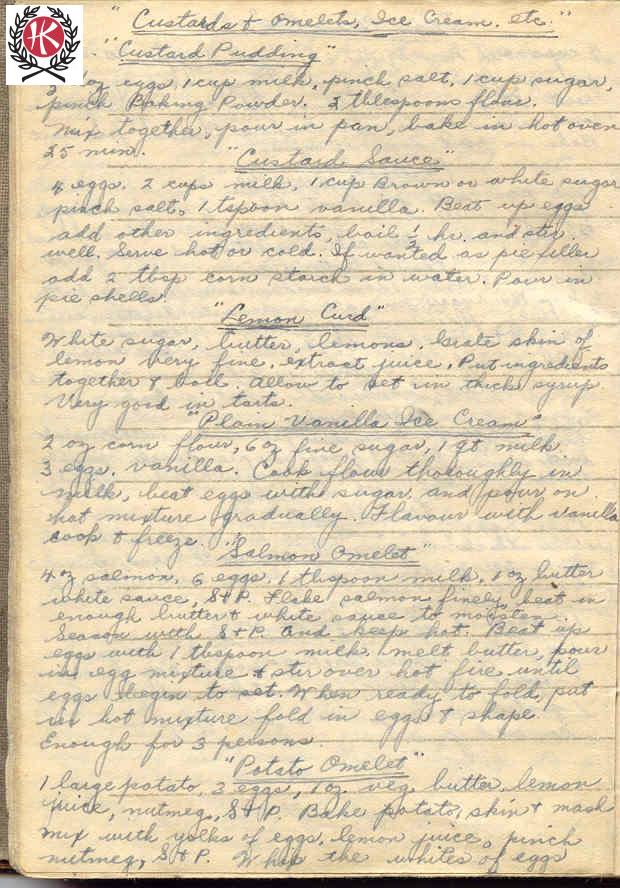 HK
"Custards & Omelets, Ice Cream. etc."
"Custard Pudding"
3 oz eggs, 1 cup milk, pinch salt, 1 cup sugar,
pinch Baking Powder. 3 tblespoons flour.
Mix together, pour in pan, bake in hot oven
25 min.
"Custard Sauce"
4 eggs. 2 cups milk, 1 cup Brown or white sugar
pinch salt, 1 tspoon vanilla. Beat up eggs
add other ingredients, boil 1/2 hr. and stir
well. Serve hot or cold. If wanted as pie filler
add 2 tbsp corn starch in water. Pour in
pie shells.
"Lemon Curd"
White sugar, butter, lemons. Grate skin of
lemon very fine, extract juice, Put ingredients
together & boil. Allow to set in thick syrup.
Very good in tarts.
"Plain Vanilla Ice Cream"
2 oz corn flour, 6 oz fine sugar, 1 qt milk
3 eggs. vanilla. Cook flour thoroughly in
milk, beat eggs with sugar and pour on
hot mixture gradually. Flavour with vanilla
cook & freeze.
"Salmon Omelet"
4 oz salmon, 6 eggs, 1 tblspoon milk, 1 oz butter
white sauce, S & P. Flake salmon finely heat in
enough butter & white sauce to moisten.
Season with S & P. and keep hot. Beat up
eggs with 1 tblspoon milk. melt butter, pour
in egg mixture & stir over hot fire until
eggs begin to set. When ready to fold, put
in hot mixture fold in eggs & shape.
Enough for 3 persons.
"Potato Omelet"
1 large potato, 3 eggs, 1 oz veg. butter, lemon
juice, nutmeg, S & P. Bake potato, skin & mash
mix with yolks of eggs, lemon juice, pinch
nutmeg, S & P. Whip the whites of eggs